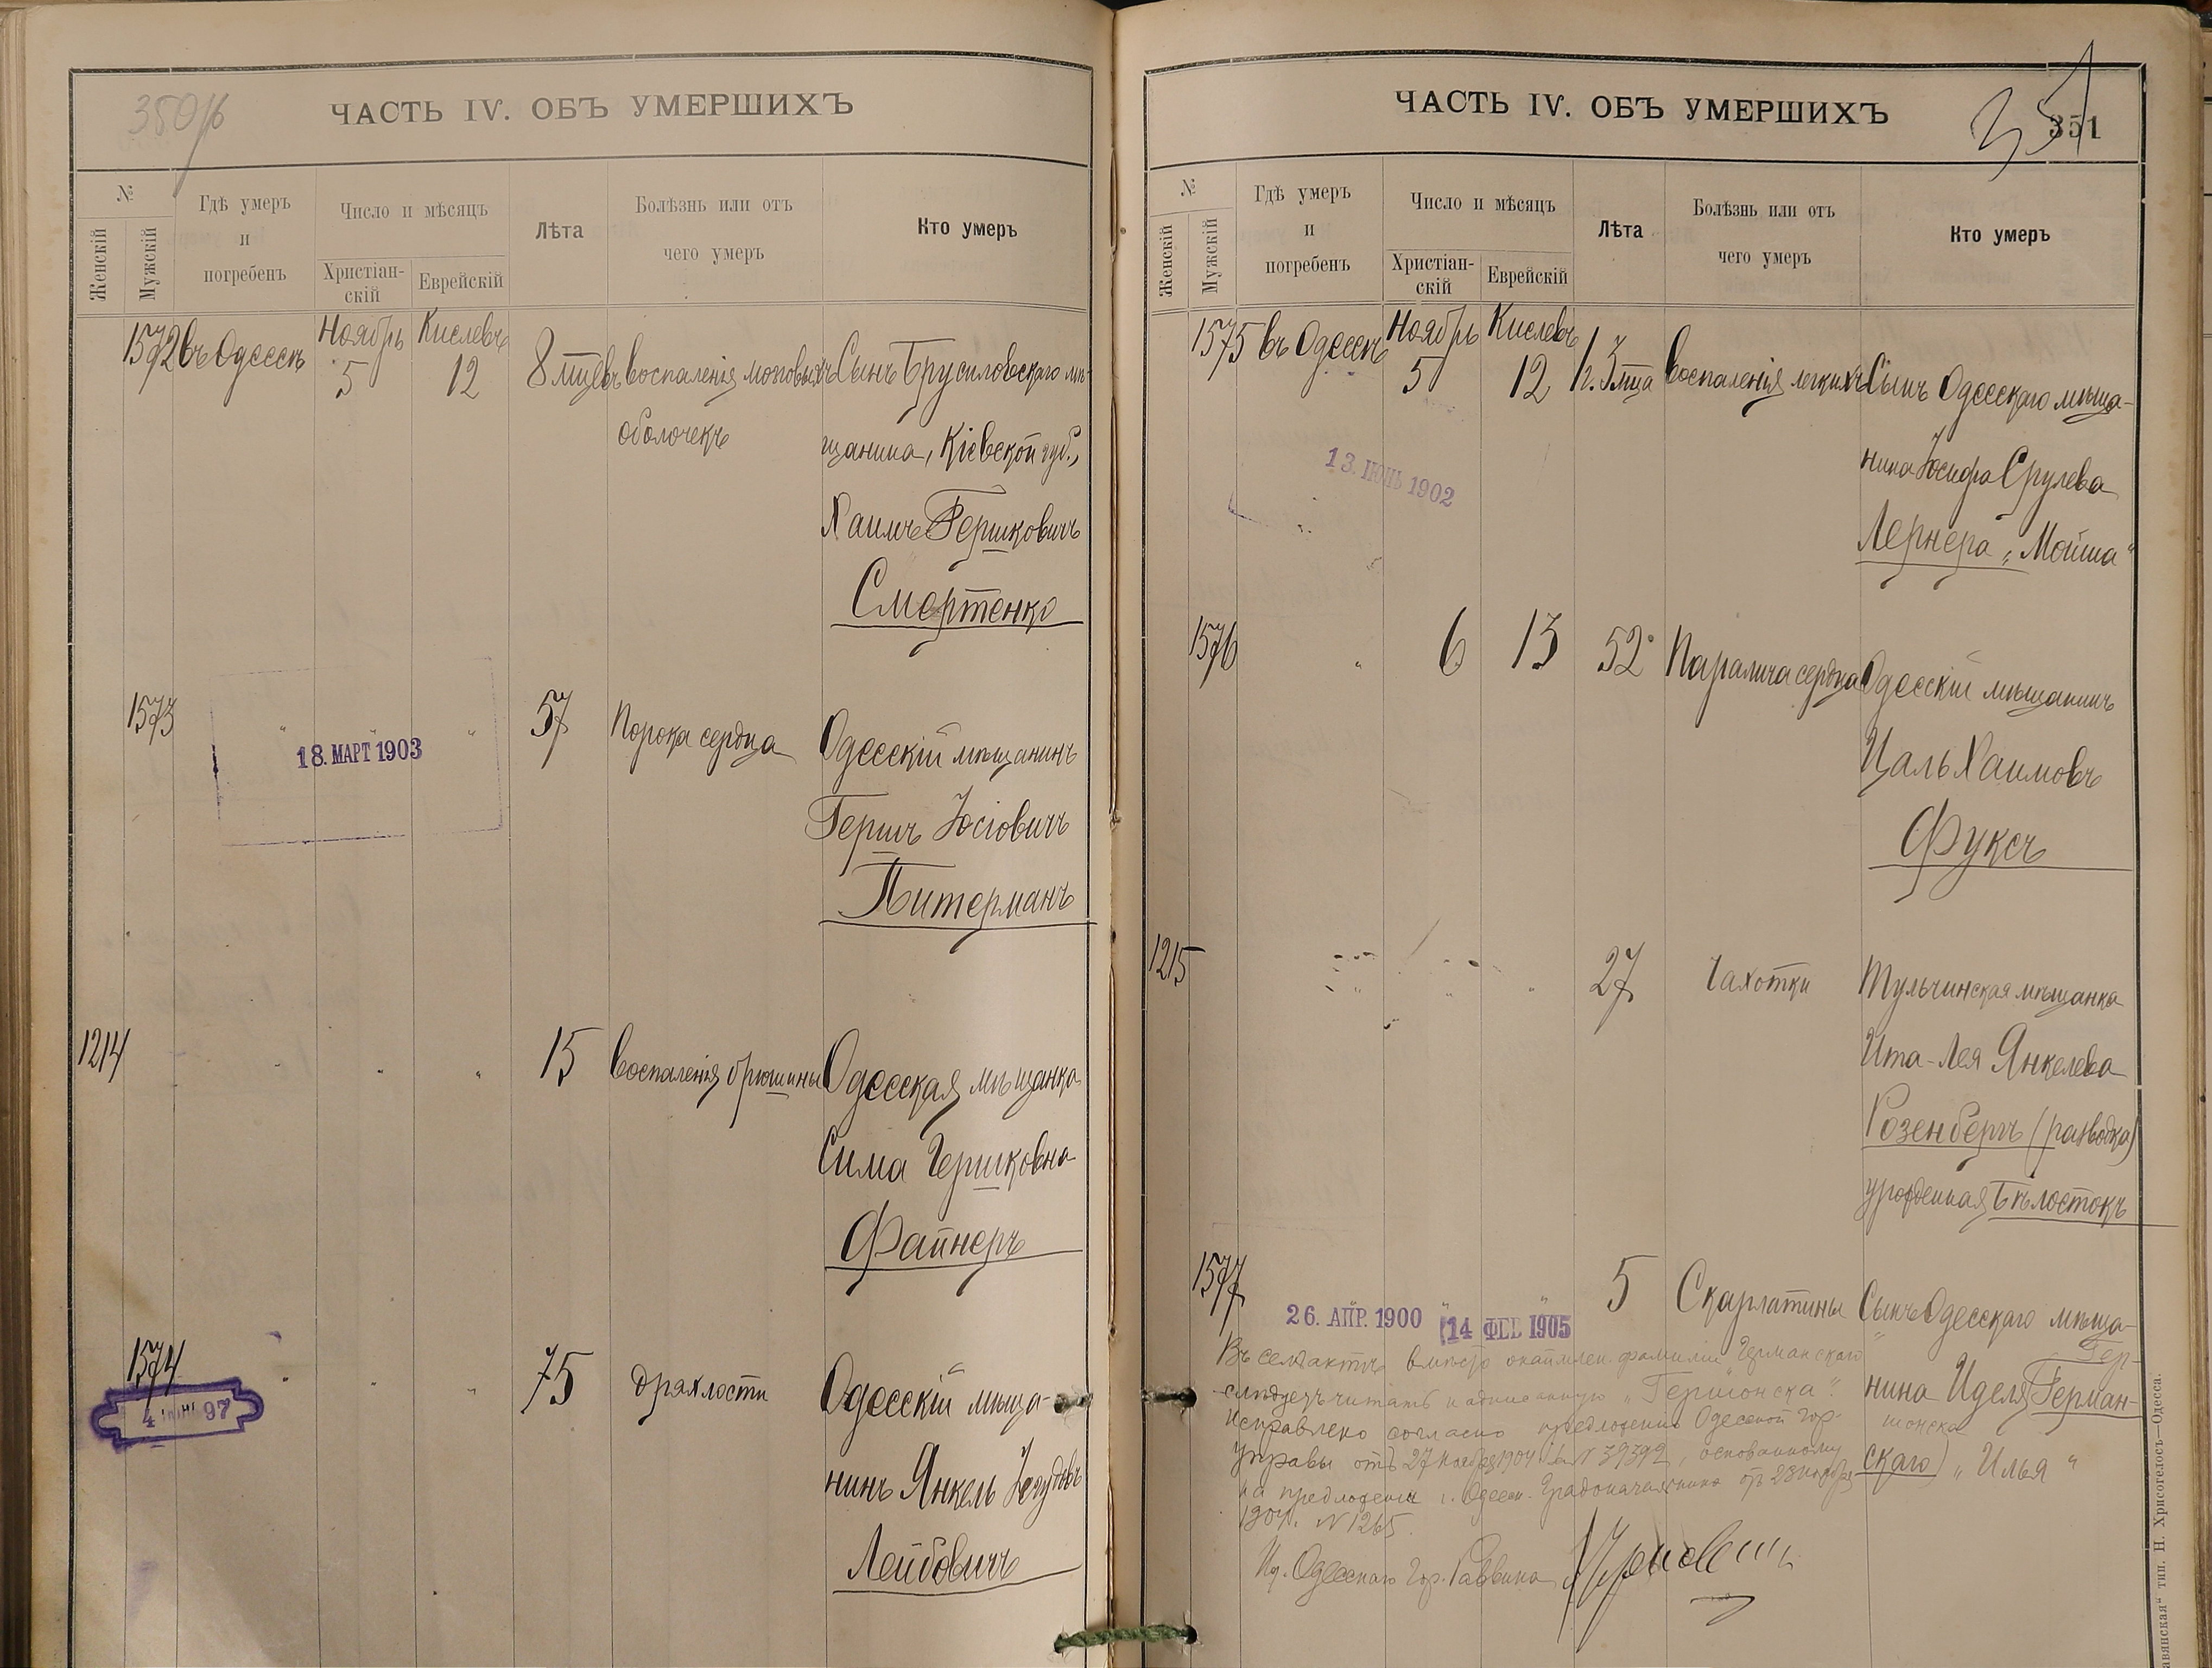 350/б
ЧАСТЬ IV. ОБЪ УМЕРШИХЪ
№
Женскій
Мужскій
Гдѣ умеръ
и
погребенъ
Число и мѣсяцъ
Христіан-
скій
Еврейскій
Лѣта
Болѣзнь или отъ
чего умеръ
Кто умеръ
1572 въ Одессѣ Ноябрь 5 Кислевъ 12 8 мцевъ воспаленія мозговыхъ Сынъ Брусиловскаго мѣ-
оболочекъ щанина, Кіевской губ.,
Хаимъ Гершковичъ
Смертенко
1573 " " " 57 Порока сердца Одесскій мѣщанинъ
18. МАРТ 1903
Гершъ Іосіовичъ
Питерманъ
1214 " " " 15 воспаленія брюшины Одесская мѣщанка
Сима Гершковна
Файнеръ
1574 " " " 75 дряхлости Одесскій мѣща-
4 ІЮН 97
нинъ Янкель Іегудовъ
Лейбовичъ
351
ЧАСТЬ IV. ОБЪ УМЕРШИХЪ
351
№
Женскій
Мужскій
Гдѣ умеръ
и
погребенъ
Число и мѣсяцъ
Христіан-
скій
Еврейскій
Лѣта
Болѣзнь или отъ
чего умеръ
Кто умеръ
1575 въ Одессѣ Ноябрь 5 Кислевъ 12 1 г. 3 мца воспаленія легкихъ Сынъ Одесскаго мѣща-
13. ІЮНЬ 1902
нина Іосифа Срулева
Лернера „Мойша“
1576 " 6 13 52 Паралича сердца Одесскій мѣщанинъ
Цаль Хаимовъ
Фуксъ
1215 " " " 27 Чахотки Тульчинская мѣщанка
Ита-Лея Янкелева
Розенбергъ (разводка)
урожденная Бѣлостокъ
1577 " " " 5 Скарлатины Сынъ Одесскаго мѣща-
26. АПР. 1900
14 ФЕВ 1905
Гер-
нина Иделя Герман-
шонска
скаго) „Илья“
Въ семъ актѣ вмѣсто окаймлен. фамиліи „Германскаго
слѣдуетъ читать надписанную „Гершонска“.
Исправлено согласно предложенію Одесской Гор.
Управы отъ 27 Ноября 1904 г. за № 39392, основанному
на предложеніи г. Одесск. Градоначальника отъ 23 Ноября
1904 г. № 1265.
Ид. Одесскаго Гор. Раввина
тип. Н. Хрисогелосъ—Одесса.